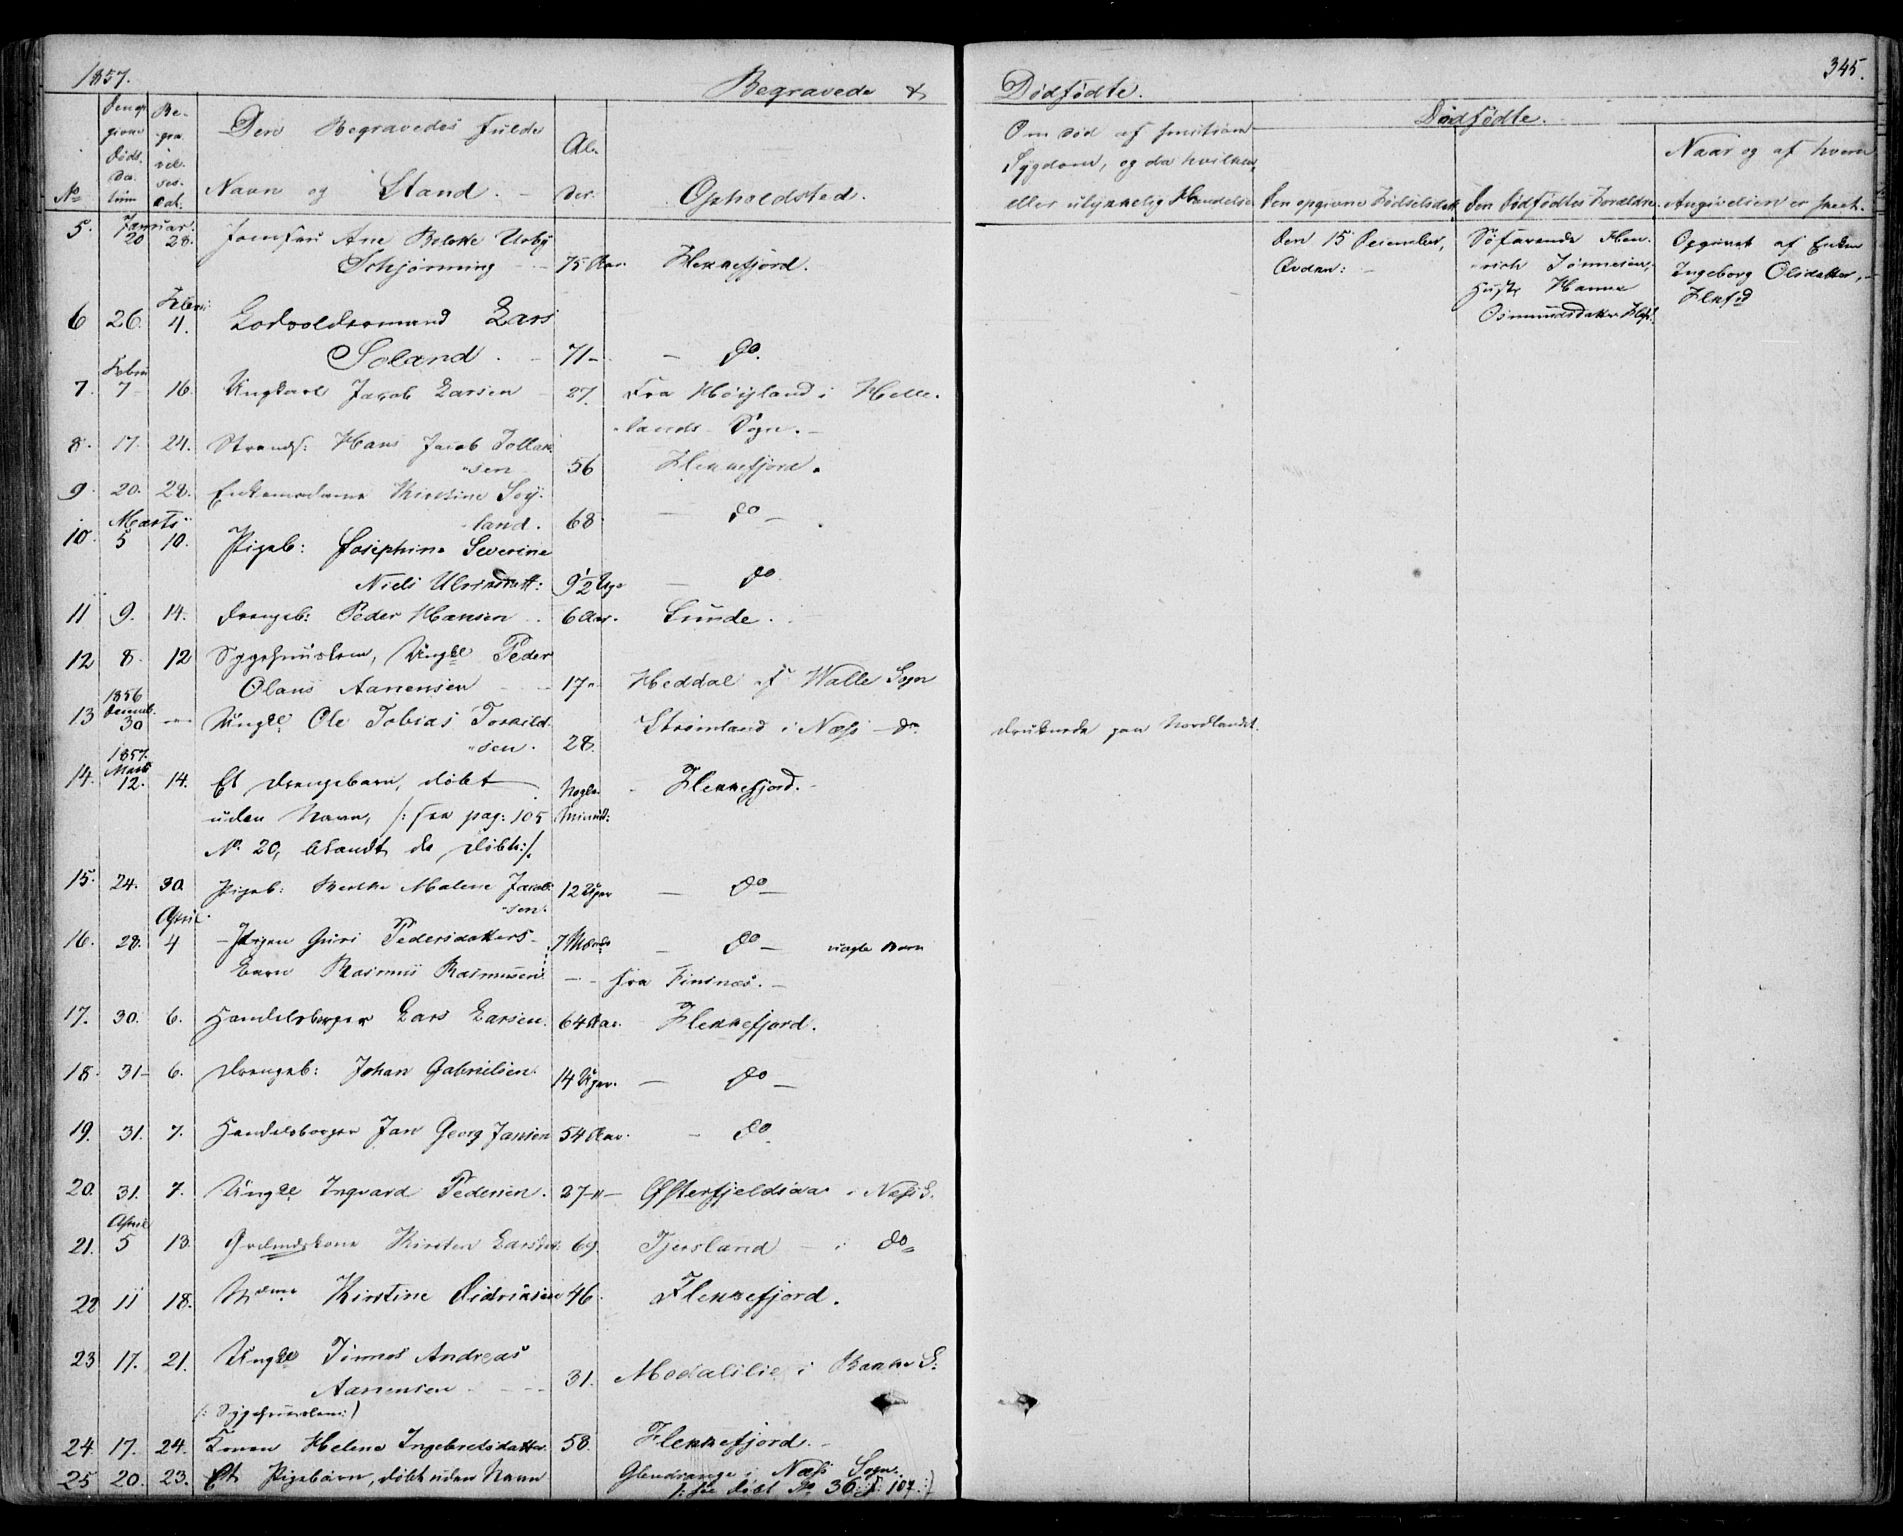 1857.
Begravede &
Dødfødte.
345.
No
Den opgivne Døds-Datum
Begravelses-Dat.
Den Begravedes fulde
Navn og Stand.
Alder.
Opholdsted.
Om død af smitsom
Sygdom, og da hvilken,
eller ulykkelig Hændelse
Dødfødte.
Den opgivne Fødselsdat.
Den Dødfødtes Forældre.
Naar og af hvem
Angivelsen er skeet.
Januar.
5. 20 28. Jomfru Ane Bolette Urby
Schjørning - - 75 Aar. Flekkefjord.
Den 15 December,
Søfarende Hen-
rich Tønnesen,
Hust. Hanna
Osmundsdatter Flfj.
Opgivet af Enken
Ingeborg Olsdatter, -
Flkfd
Febru
6 26. 4. Lodsoldermand Lars
Soland. - 71 - - do.
Febru
7. 7 16. Ungkarl Jacob Larsen - 27. Fra Høyland i Helle-
lands - Sogn. -
8. 17. 24. Strands: Hans Jacob Tollak-
sen 56 Flekkefjord.
9. 20. 28. Enkemadame Kirstine Søy-
land. 68 - do -
Marts
10. 5 10. Pigeb: Josephine Severine
Niels Ulriksdatt: 9½ Uge - do
11 9. 14. Drengeb: Peder Hansen - 6 Aar. Lunde.
12 8. 12 Sygehuuslem, Ungkl Peder
Olaus Aanensen - - 17 " Heddal af Walle Sogn
1856
Decemb.
13 30 - Ungkl Ole Tobias Torkild-
sen. 28. Strømland i Næss - do
Druknede paa Nordlandet.
1857.
Marts
14. 12. 14. Et Drengebarn, døbt
uden Navn, /: see pag: 105
No 20, blandt de Døbte :/.
Nogle Minut: - Flekkefjord. -
15. 24. 30 Pigeb: Berthe Malene Jacob-
sen. 12 Uger - do -
April.
16. 28. 4 - Pigen Guri Pedersdatters -
Barn Rasmus Rasmussen 7 Maaned - do - uægte Barn
- - fra Finsnes. -
17. 30. 6. Handelsborger Lars Larsen. 64 Aar. Flekkefjord.
18. 31 - 6. Drengeb: Johan Gabrielsen. 14 Uger. - do -
19. 31. 7. Handelsborger Jan Georg Jansen 54 Aar. - do
20. 31. 7. Ungkl Ingvard Pedersen. 27 - " - Øfsterfjeldsaa i Næss S.
April
21. 5 13 Grdmdskone Kirsten Larsd: 69. Tjersland - i do
22 11 18. Mdme Kirstine Didriksen 46. Flekkefjord.
23 17. 21. Ungkl Tønnes Andreas
Aanensen - - - 31. Modalslie i Bakke S.
(: Sygehuuslem :)
24. 17. 24. Konen Helene Ingebretsdatter 58. Flekkefjord. -
25 20. 23. Et Pigebarn, døbt uden Navn Glendrange i Næss Sogn.
/: see døbt No 36 P. 107 :/